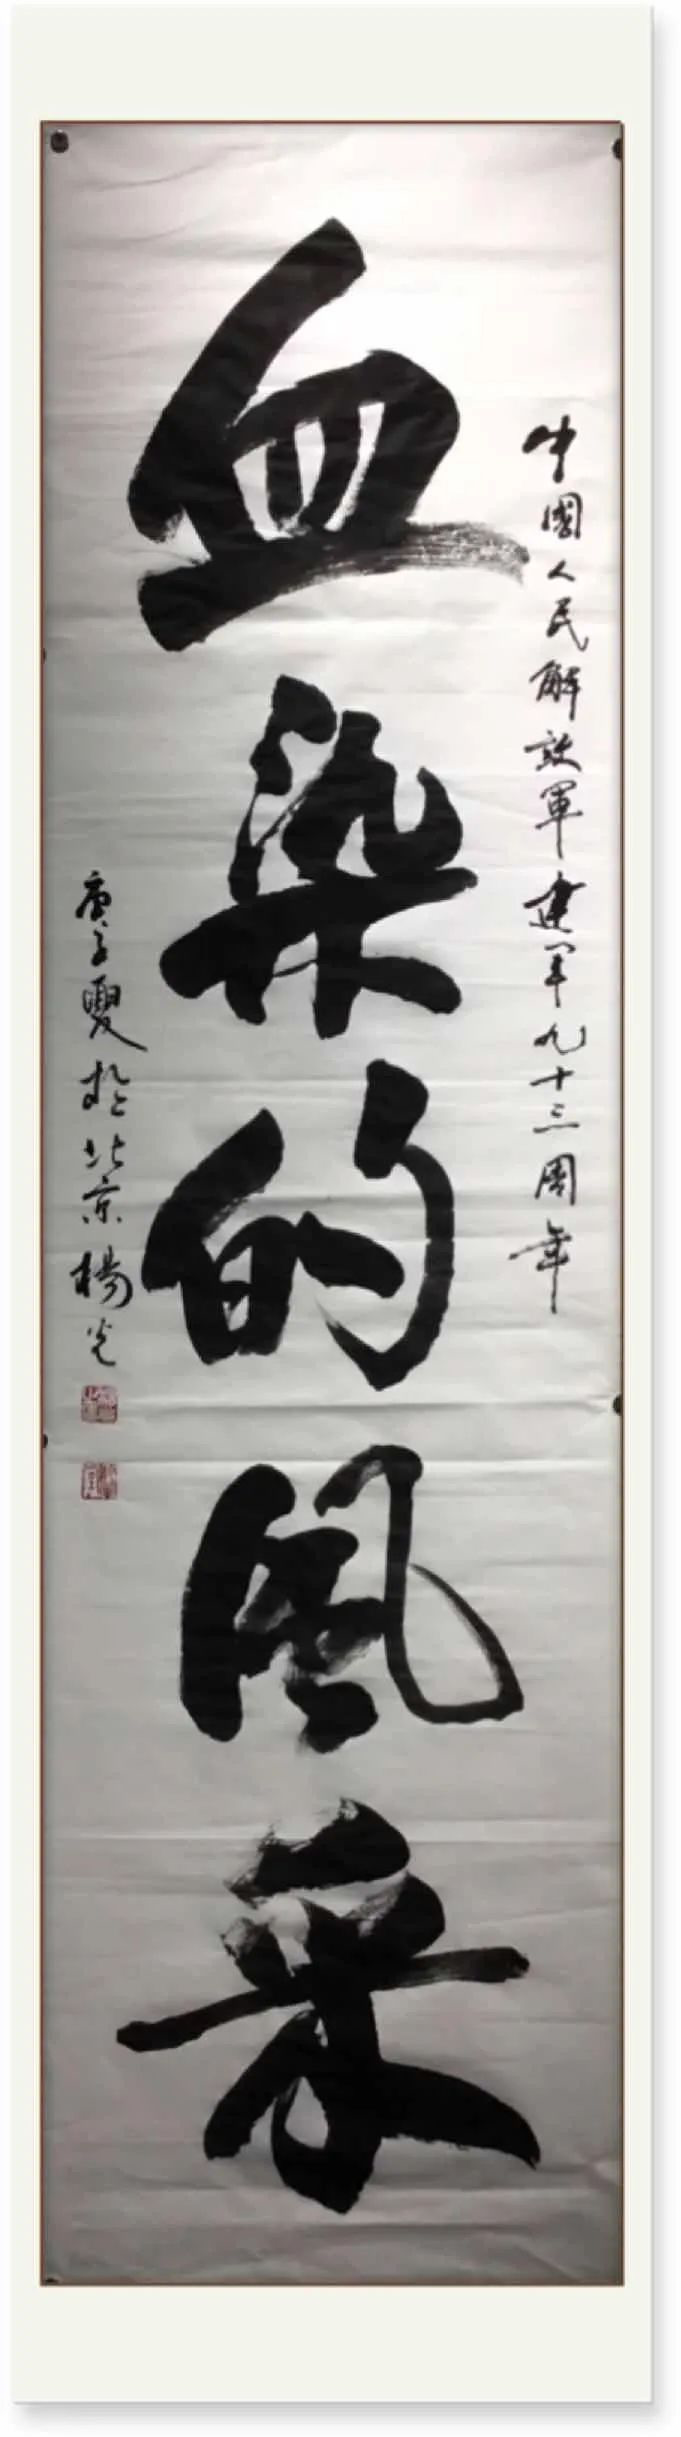 中國人民解放軍建军九十三周年
血染的風采
庚子夏於北京楊光